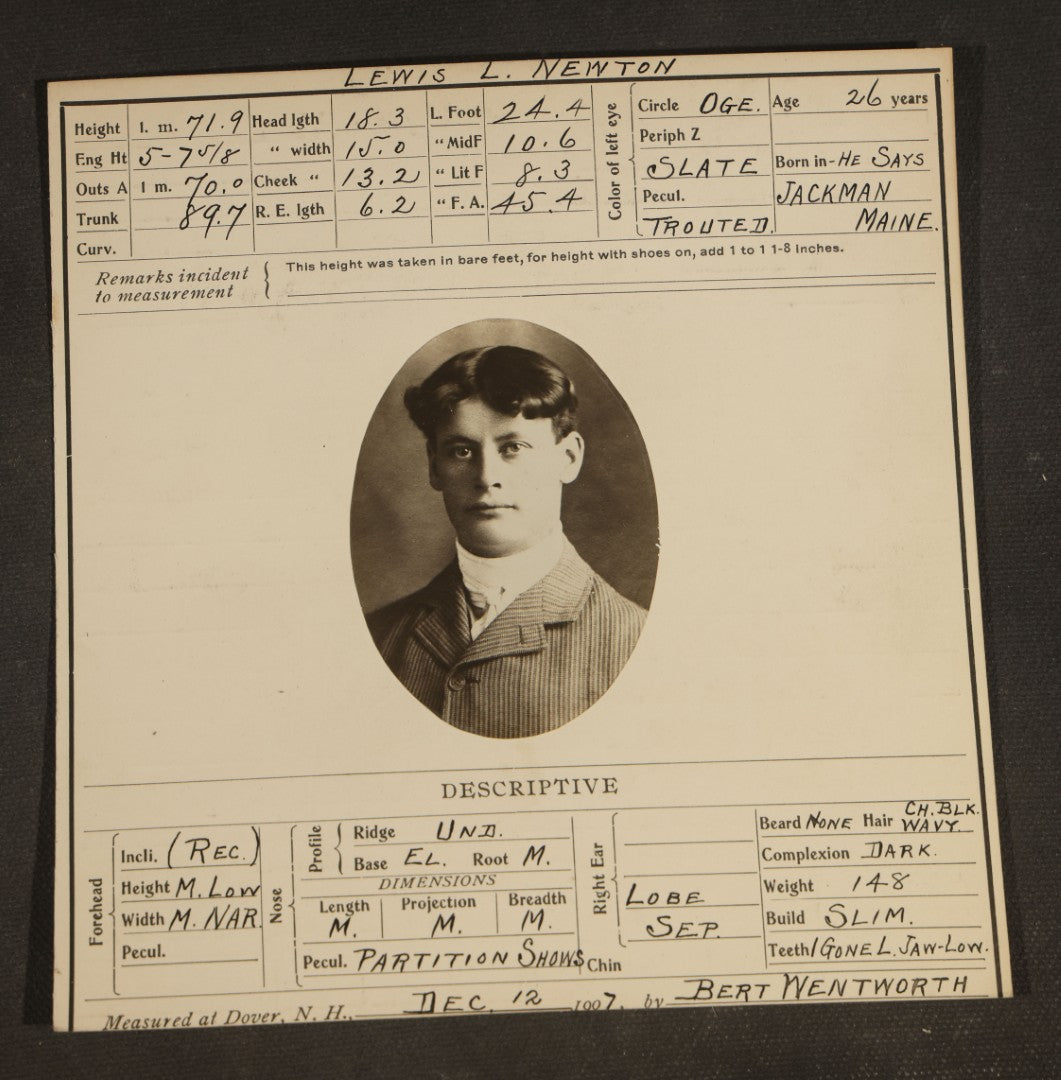 LEWIS L. NEWTON
Height 1. m. 71.9 Head lgth 18.3 L. Foot 24.4 Color of left eye Circle OGE. Age 26 years
Eng Ht 5-7 5/8 " width 15.0 " MidF 10.6 Periph Z
Outs A 1 m. 70.0 Cheek " 13.2 " Lit F 8.3 SLATE Born in - HE SAYS
Trunk 89.7 R. E. lgth 6.2 " F. A. 45.4 Pecul. JACKMAN
Curv. TROUTED. MAINE.
Remarks incident to measurement { This height was taken in bare feet, for height with shoes on, add 1 to 1 1-8 inches.
DESCRIPTIVE
Forehead
Incli. (REC.)
Height M. LOW
Width M. NAR.
Pecul.
Nose
Profile
Ridge UND.
Base EL. Root M.
DIMENSIONS
Length Projection Breadth
M. M. M.
Pecul. PARTITION SHOWS
Right Ear
LOBE
SEP.
Chin
Beard NONE Hair CH. BLK. WAVY.
Complexion DARK.
Weight 148
Build SLIM.
Teeth 1 GONE L. JAW-LOW.
Measured at Dover, N. H., DEC. 12 1907, by BERT WENTWORTH